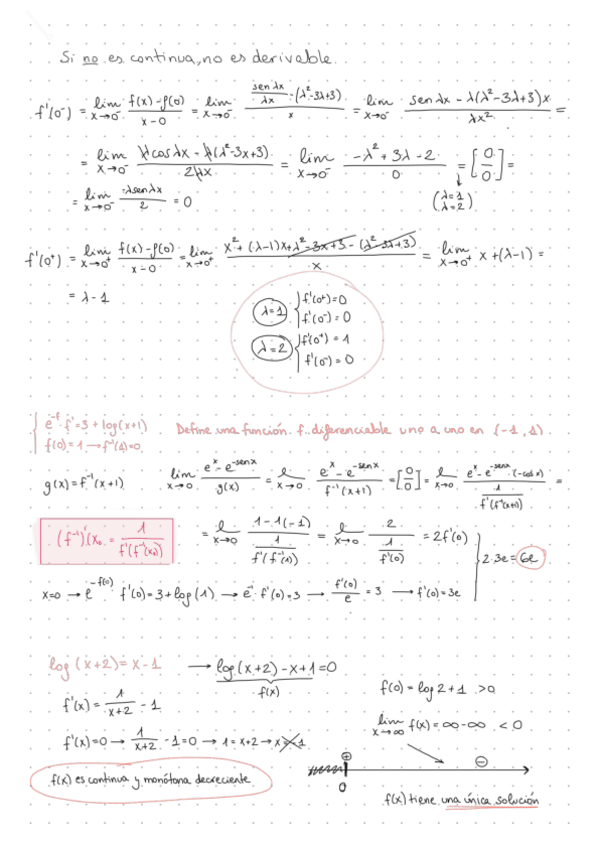 Si no es continua, no es derivable.
f'(0⁻) = lim x→0⁻ (f(x) - f(0))/(x-0) = lim x→0⁻ (sen λx/λx - (λ²-3λ+3))/x = lim x→0⁻ (sen λx - λ(λ²-3λ+3)x)/λx² =
= lim x→0⁻ (λcosλx - λ(λ²-3x+3))/2λx = lim x→0⁻ (-λ²+3λ-2)/0 = [0/0] =
= lim x→0⁻ -λsenλx/2 = 0 (λ=1 λ=2)
f'(0⁺) = lim x→0⁺ (f(x)-f(0))/(x-0) = lim x→0⁺ (x² + (λ-1)x + λ²-3x+3 - (λ²-3λ+3))/x = lim x→0⁺ x+(λ-1) =
= λ-1
λ=1 { f'(0⁺)=0
f'(0⁻)=0
λ=2 { f'(0⁺)=1
f'(0⁻)=0
{ e^-f · f' = 3 + log(x+1) Define una función f diferenciable uno a uno en (-1,1)
f(0)=1 → f⁻¹(1)=0
g(x)=f⁻¹(x+1) lim x→0 (e^x - e^-senx)/g(x) = l x→0 (e^x - e^-senx)/f⁻¹(x+1) = [0/0] = l x→0 (e^x - e^-senx · (-cosx))/(1/f'(f⁻¹(x+1))) =
(f⁻¹)'(x₀) = 1/f'(f⁻¹(x₀)) = l x→0 (1-1(-1))/(1/f'(f⁻¹(1))) = l x→0 2/(1/f'(0)) = 2f'(0) } 2·3e = 6e
x=0 → e^-f(0) f'(0)=3+log(1) → e⁻¹·f'(0)=3 → f'(0)/e = 3 → f'(0)=3e
log(x+2)=x-1 → log(x+2)-x+1=0
f(x)
f'(x) = 1/(x+2) - 1 f(0)=log2+1 >0
lim x→∞ f(x)=∞-∞ <0
f'(x)=0 → 1/(x+2) - 1=0 → 1=x+2 → x=-1
f(x) es continua y monótona decreciente
⊕ ⊖
0
f(x) tiene una única solución